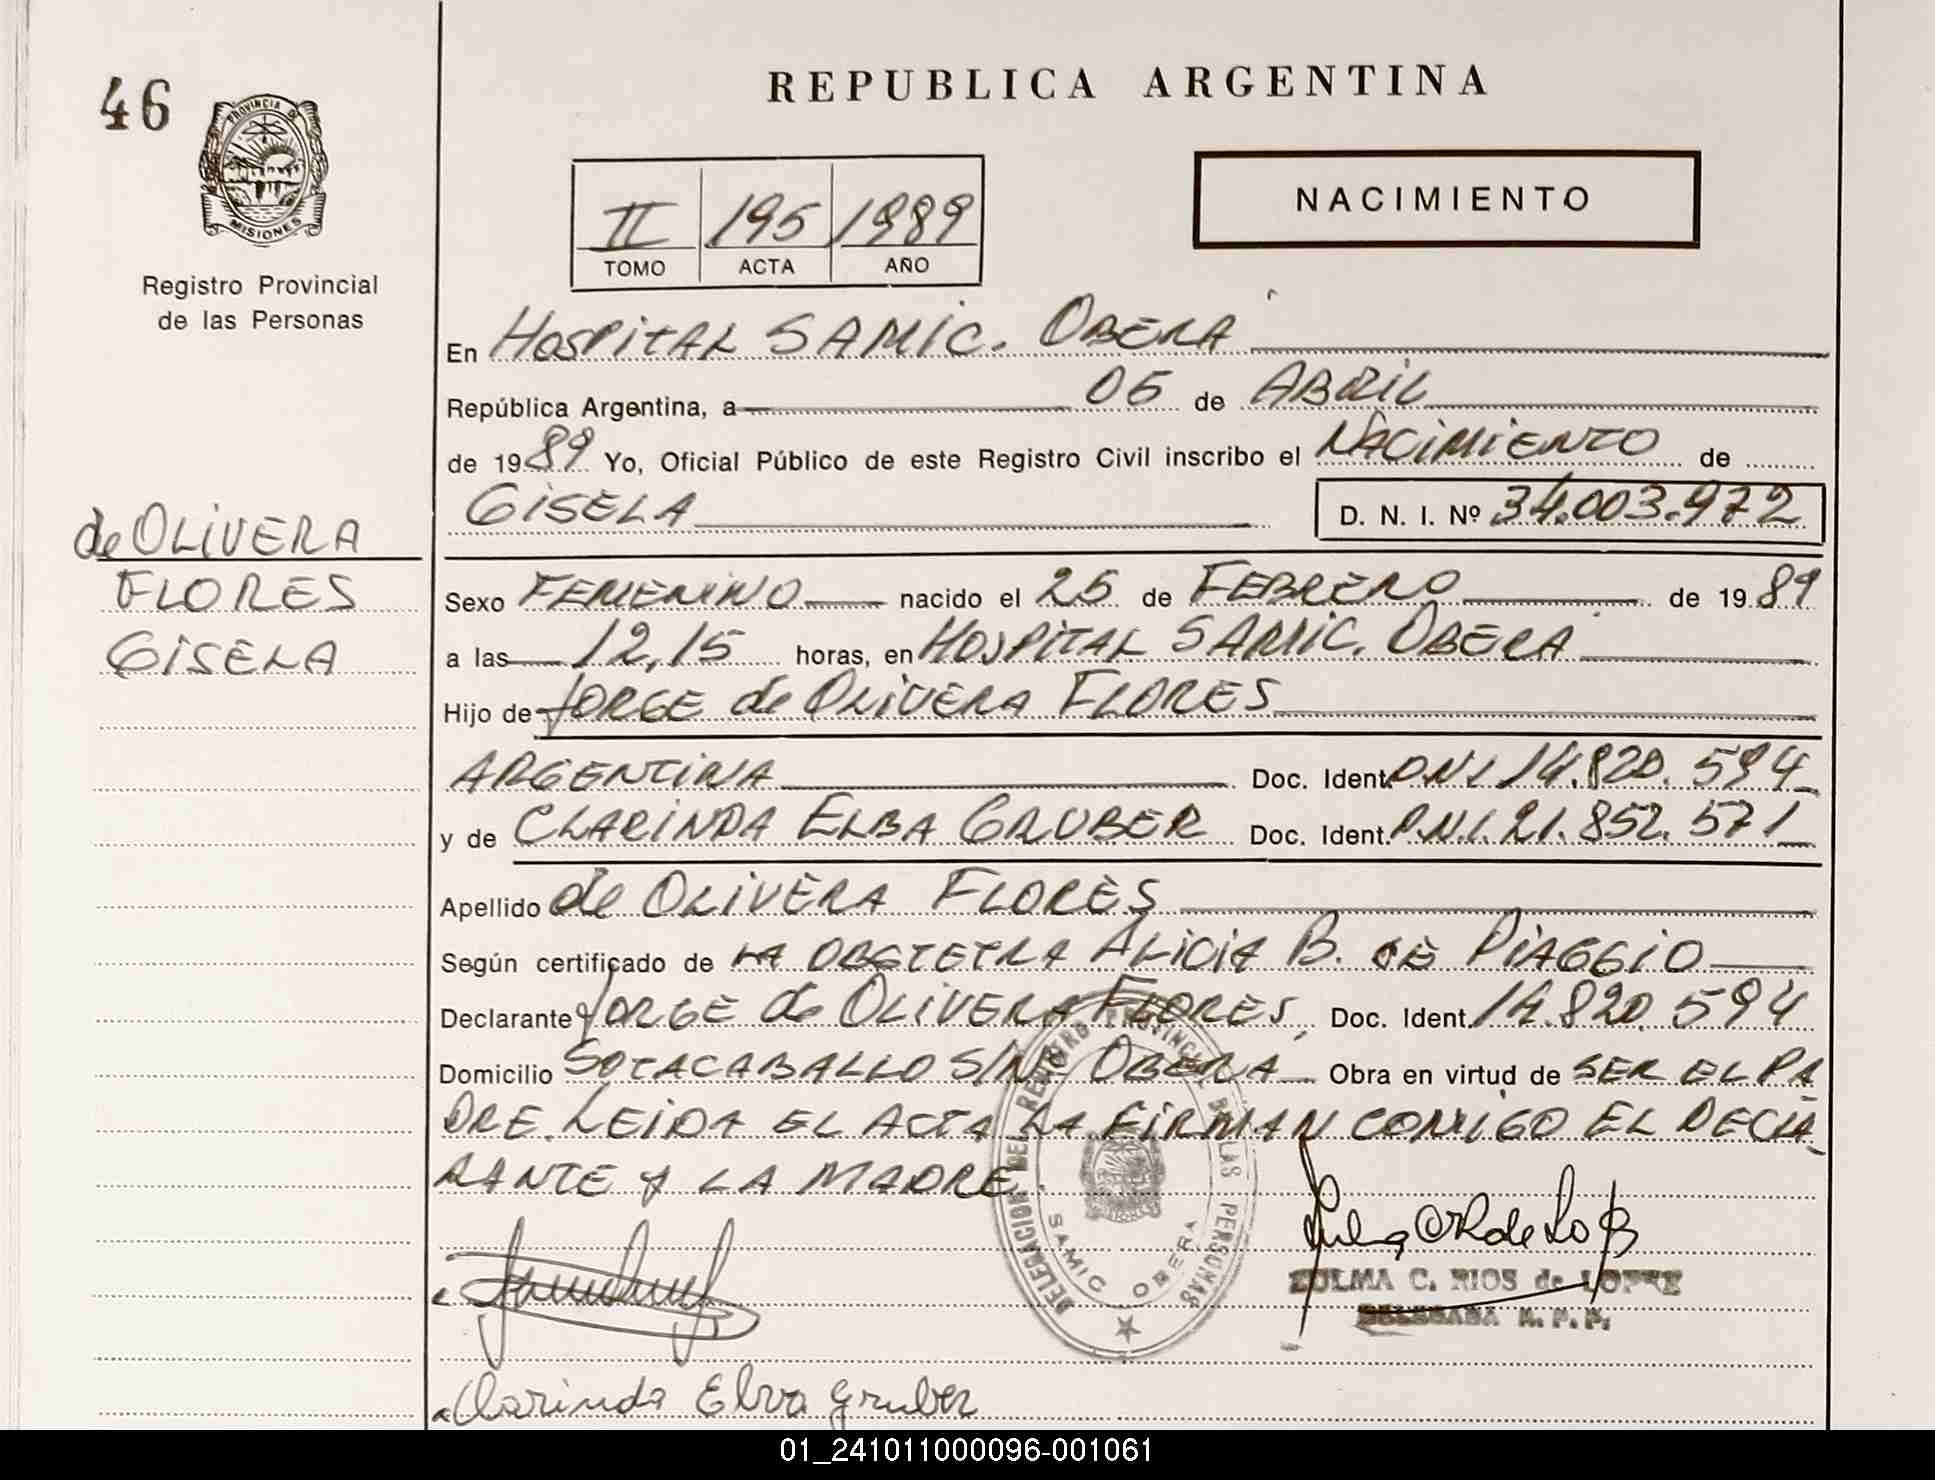 46
REPUBLICA ARGENTINA
PROVINCIA DE MISIONES
Registro Provincial
de las Personas
II 195 1989
TOMO ACTA AÑO
NACIMIENTO
En HOSPITAL SAMIC. OBERA
República Argentina, a 05 de ABRIL
de 1989 Yo, Oficial Público de este Registro Civil inscribo el NACIMIENTO de
GISELA D. N. I. Nº 34.003.972
de OLIVERA
FLORES
GISELA
Sexo FEMENINO nacido el 25 de FEBRERO de 1989
a las 12,15 horas, en HOSPITAL SAMIC. OBERA
Hijo de JORGE de OLIVERA FLORES
ARGENTINA Doc. Ident. D.N.I. 14.820.594
y de CLARINDA ELBA GRUBER Doc. Ident. D.N.I. 21.852.571
Apellido de OLIVERA FLORES
Según certificado de LA OBSTETRA ALICIA B. DE PIAGGIO
Declarante JORGE de OLIVERA FLORES, Doc. Ident. 14.820.594
Domicilio SOTACABALLO S/Nº OBERA Obra en virtud de SER EL PA
DRE. LEIDA EL ACTA LA FIRMAN CONMIGO EL DECLA
RANTE Y LA MADRE.
DELEGACION DEL REGISTRO PROVINCIAL DE LAS PERSONAS
SAMIC OBERA
ZULMA C. RIOS de LOPEZ
DELEGADA R. P. P.
Clarinda Elva Gruber
01_241011000096-001061